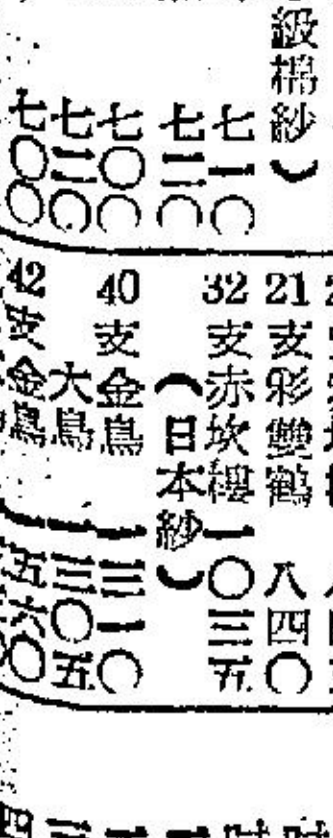 級棉紗)
七一〇
七二〇
七〇〇
七二〇
七〇〇
21支彩雙鶴 八四〇
32支赤坎 一〇三五
(日本紗)
40支金鳥 一三一〇
大鳥 一三〇五
42支金鳥 一五六〇